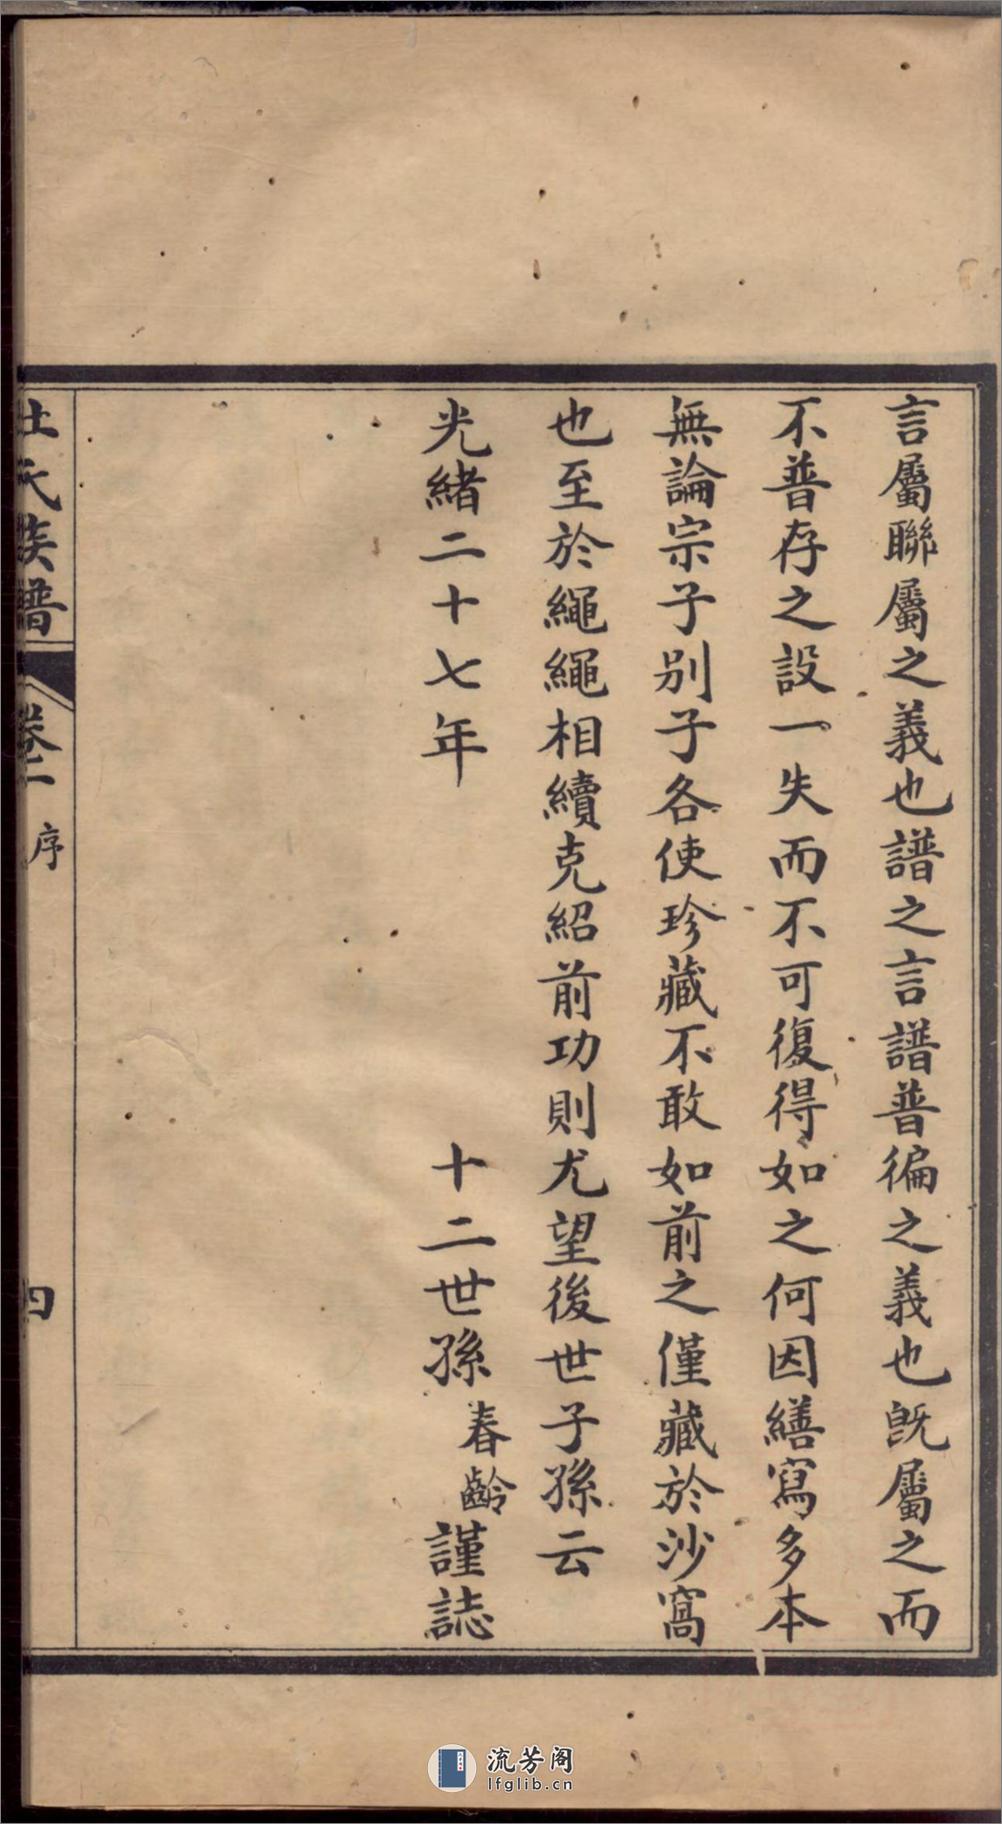 言屬聯屬之義也譜之言譜普徧之義也既屬之而
不普存之設一失而不可復得如之何因繕寫多本
無論宗子別子各使珍藏不敢如前之僅藏於沙窩
也至於繩繩相續克紹前功則尤望後世子孫云
光緒二十七年 十二世孫春齡謹誌
杜氏族譜 卷二 序 四
流芳阁
lfglib.cn